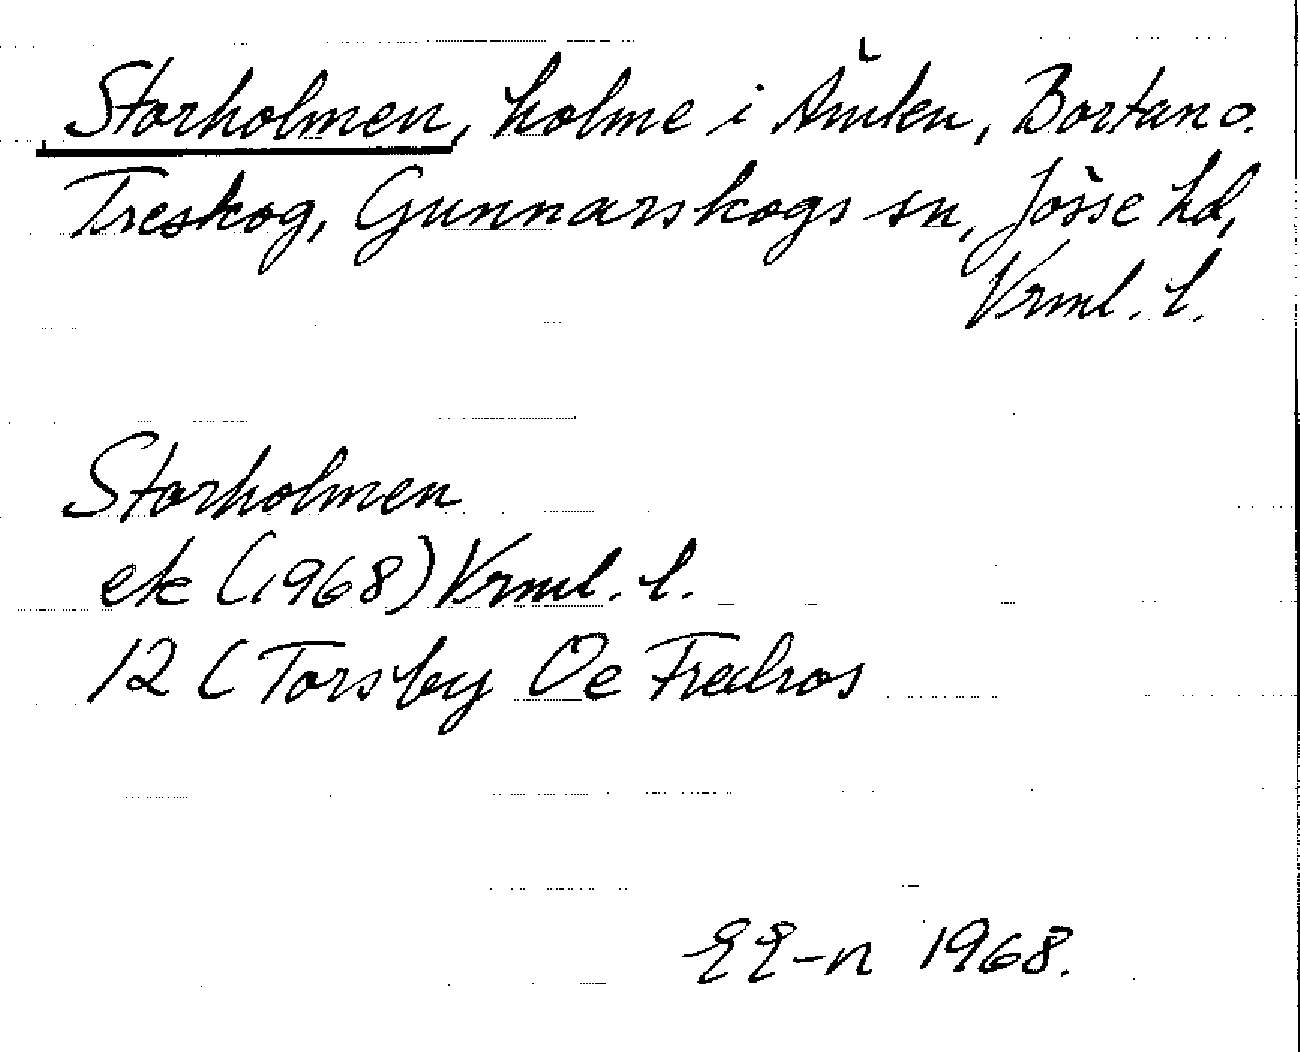 Storholmen, holme i Ämten, Bortan o.
Treskog, Gunnarskogs sn, Jösse hd,
Vrml. l.
Storholmen
ek (1968) Vrml. l.
12 C Torsby Oe Fredros
EE-n 1968.